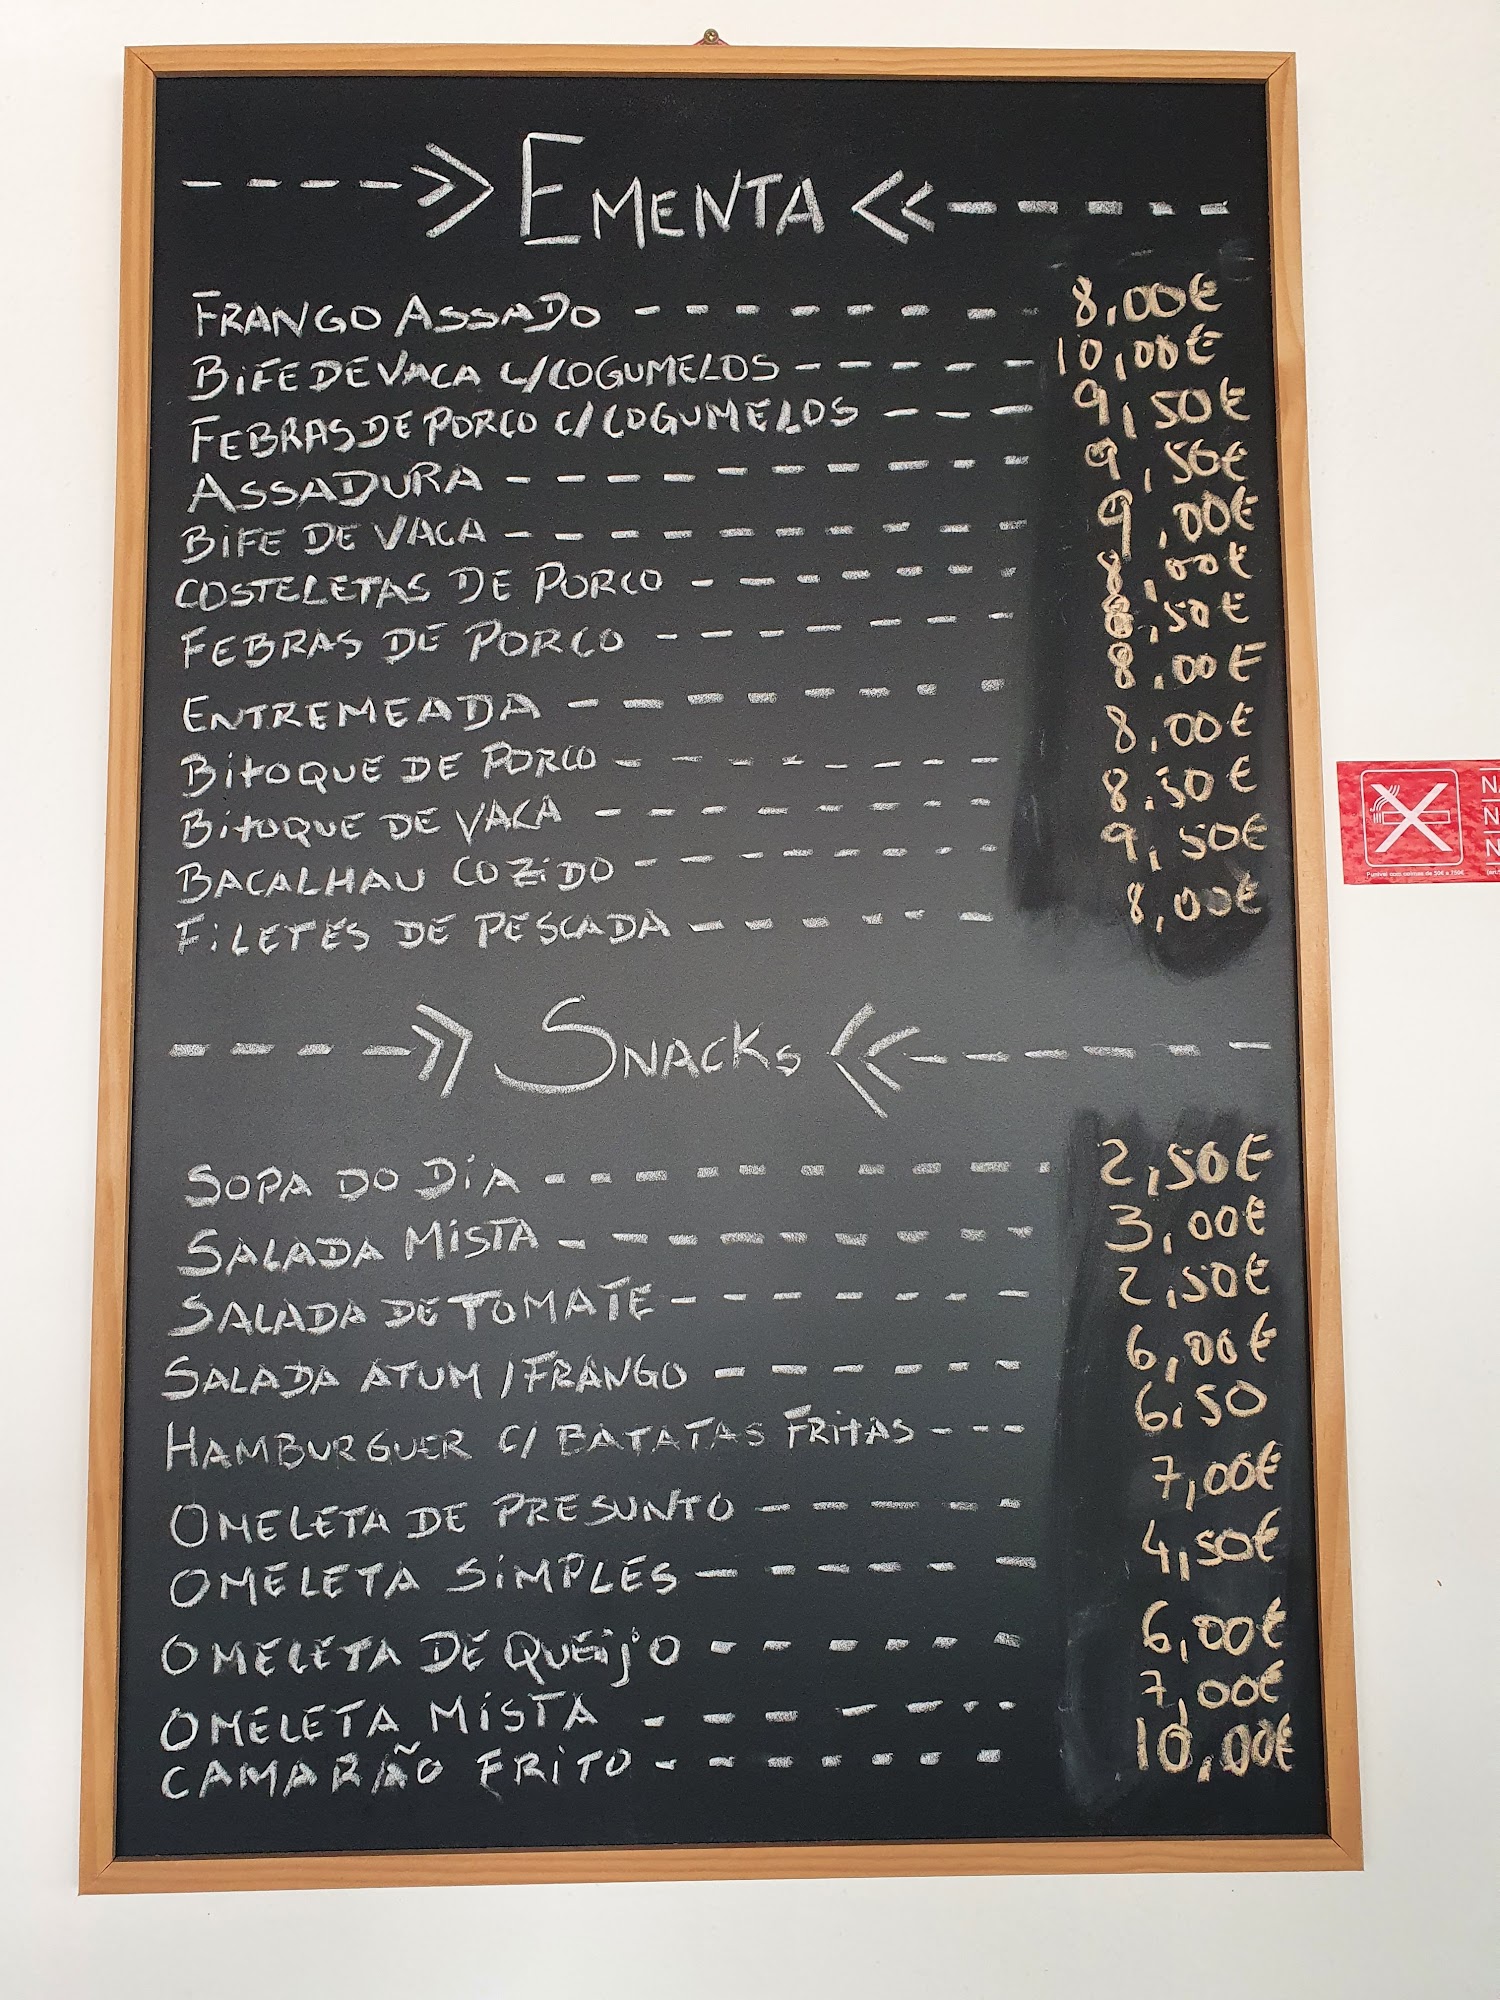 ---->> EMENTA <<-----
FRANGO ASSADO -------- 8,00€
BIFE DE VACA C/COGUMELOS ----- 10,00€
FEBRAS DE PORCO C/COGUMELOS --- 9,50€
ASSADURA ---------- 9,50€
BIFE DE VACA ---------- 9,00€
COSTELETAS DE PORCO ------- 8,00€
FEBRAS DE PORCO -------- 8,50€
ENTREMEADA -------- 8,00€
BITOQUE DE PORCO -------- 8,00€
BITOQUE DE VACA --------- 8,50€
BACALHAU COZIDO --------- 9,50€
FILETES DE PESCADA ------- 8,00€
---->> SNACKS <<------
SOPA DO DIA ---------- 2,50€
SALADA MISTA --------- 3,00€
SALADA DE TOMATE ------- 2,50€
SALADA ATUM / FRANGO ------ 6,00€
HAMBURGUER C/ BATATAS FRITAS --- 6,50
OMELETA DE PRESUNTO ------ 7,00€
OMELETA SIMPLES ------- 4,50€
OMELETA DE QUEIJO ------ 6,00€
OMELETA MISTA ------- 7,00€
CAMARÃO FRITO ------- 10,00€